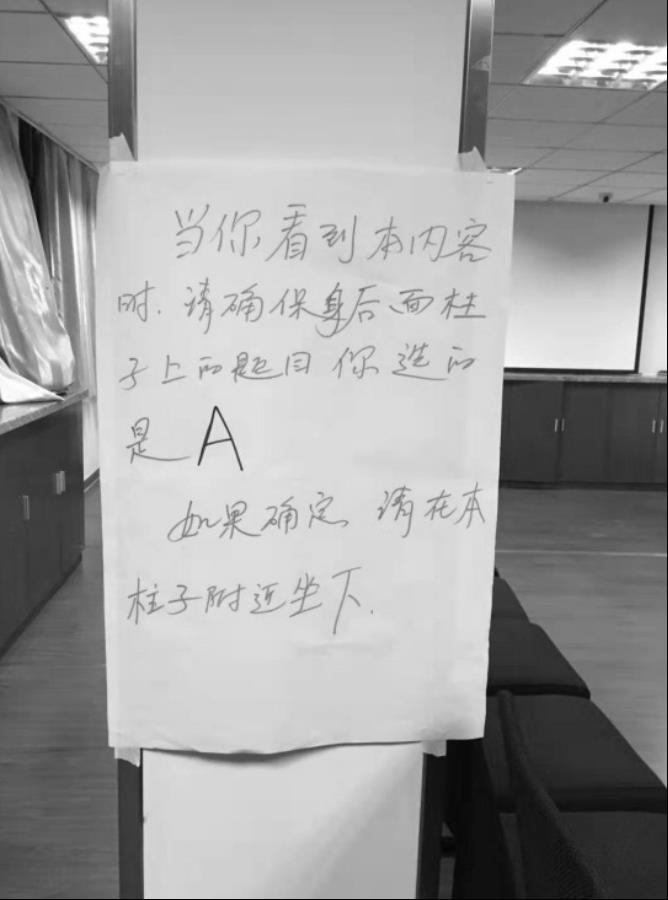 当你看到本内容
时.请确保身后面柱
子上的题目你选的
是A
如果确定,请在本
柱子附近坐下.